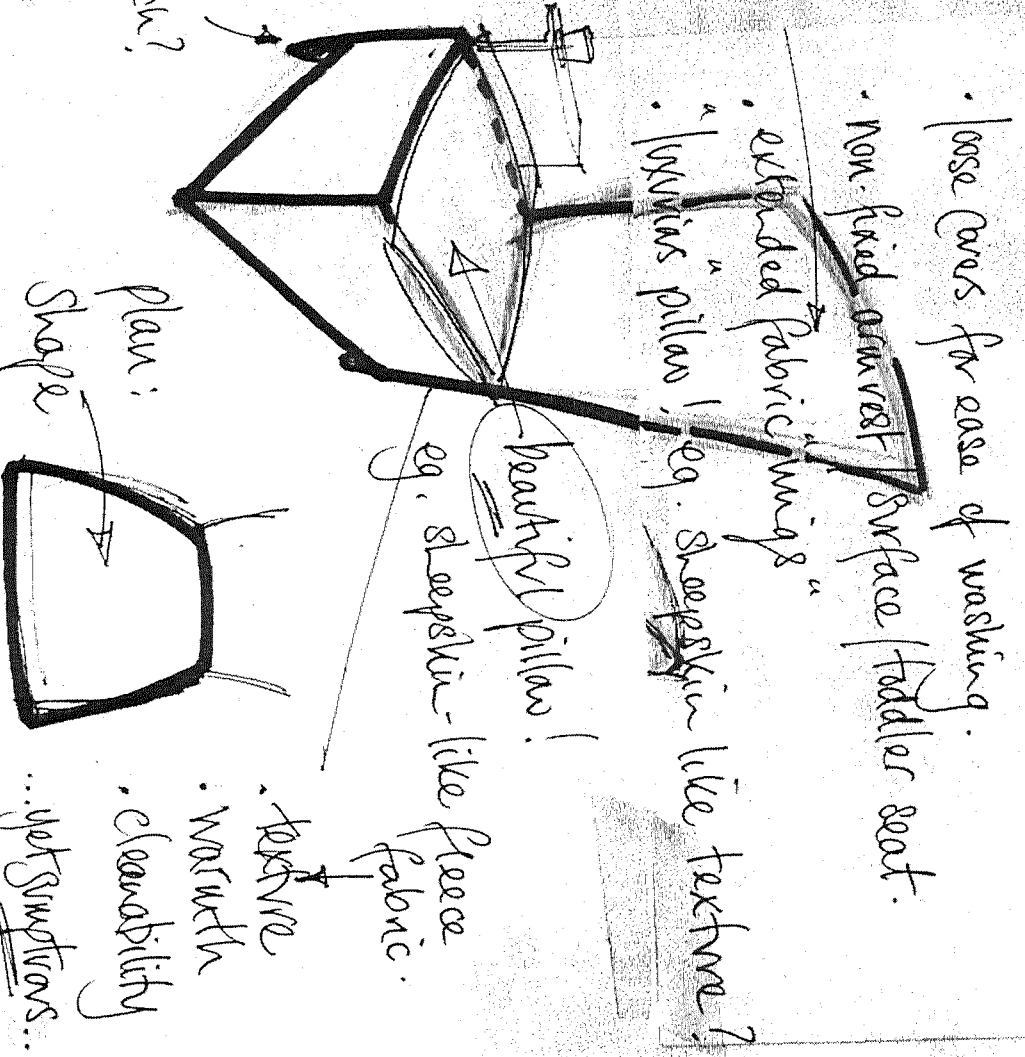 • loose covers for ease of washing.
• non-fixed armrest surface / toddler seat.
• extended fabric "wings"
• "luxurias" pillow! eg. sheepskin like texture?
beautiful pillow!
eg. sheepskin-like fleece
fabric.
• texture
• warmth
• cleanability
...yet sumptuous...
plan:
shape